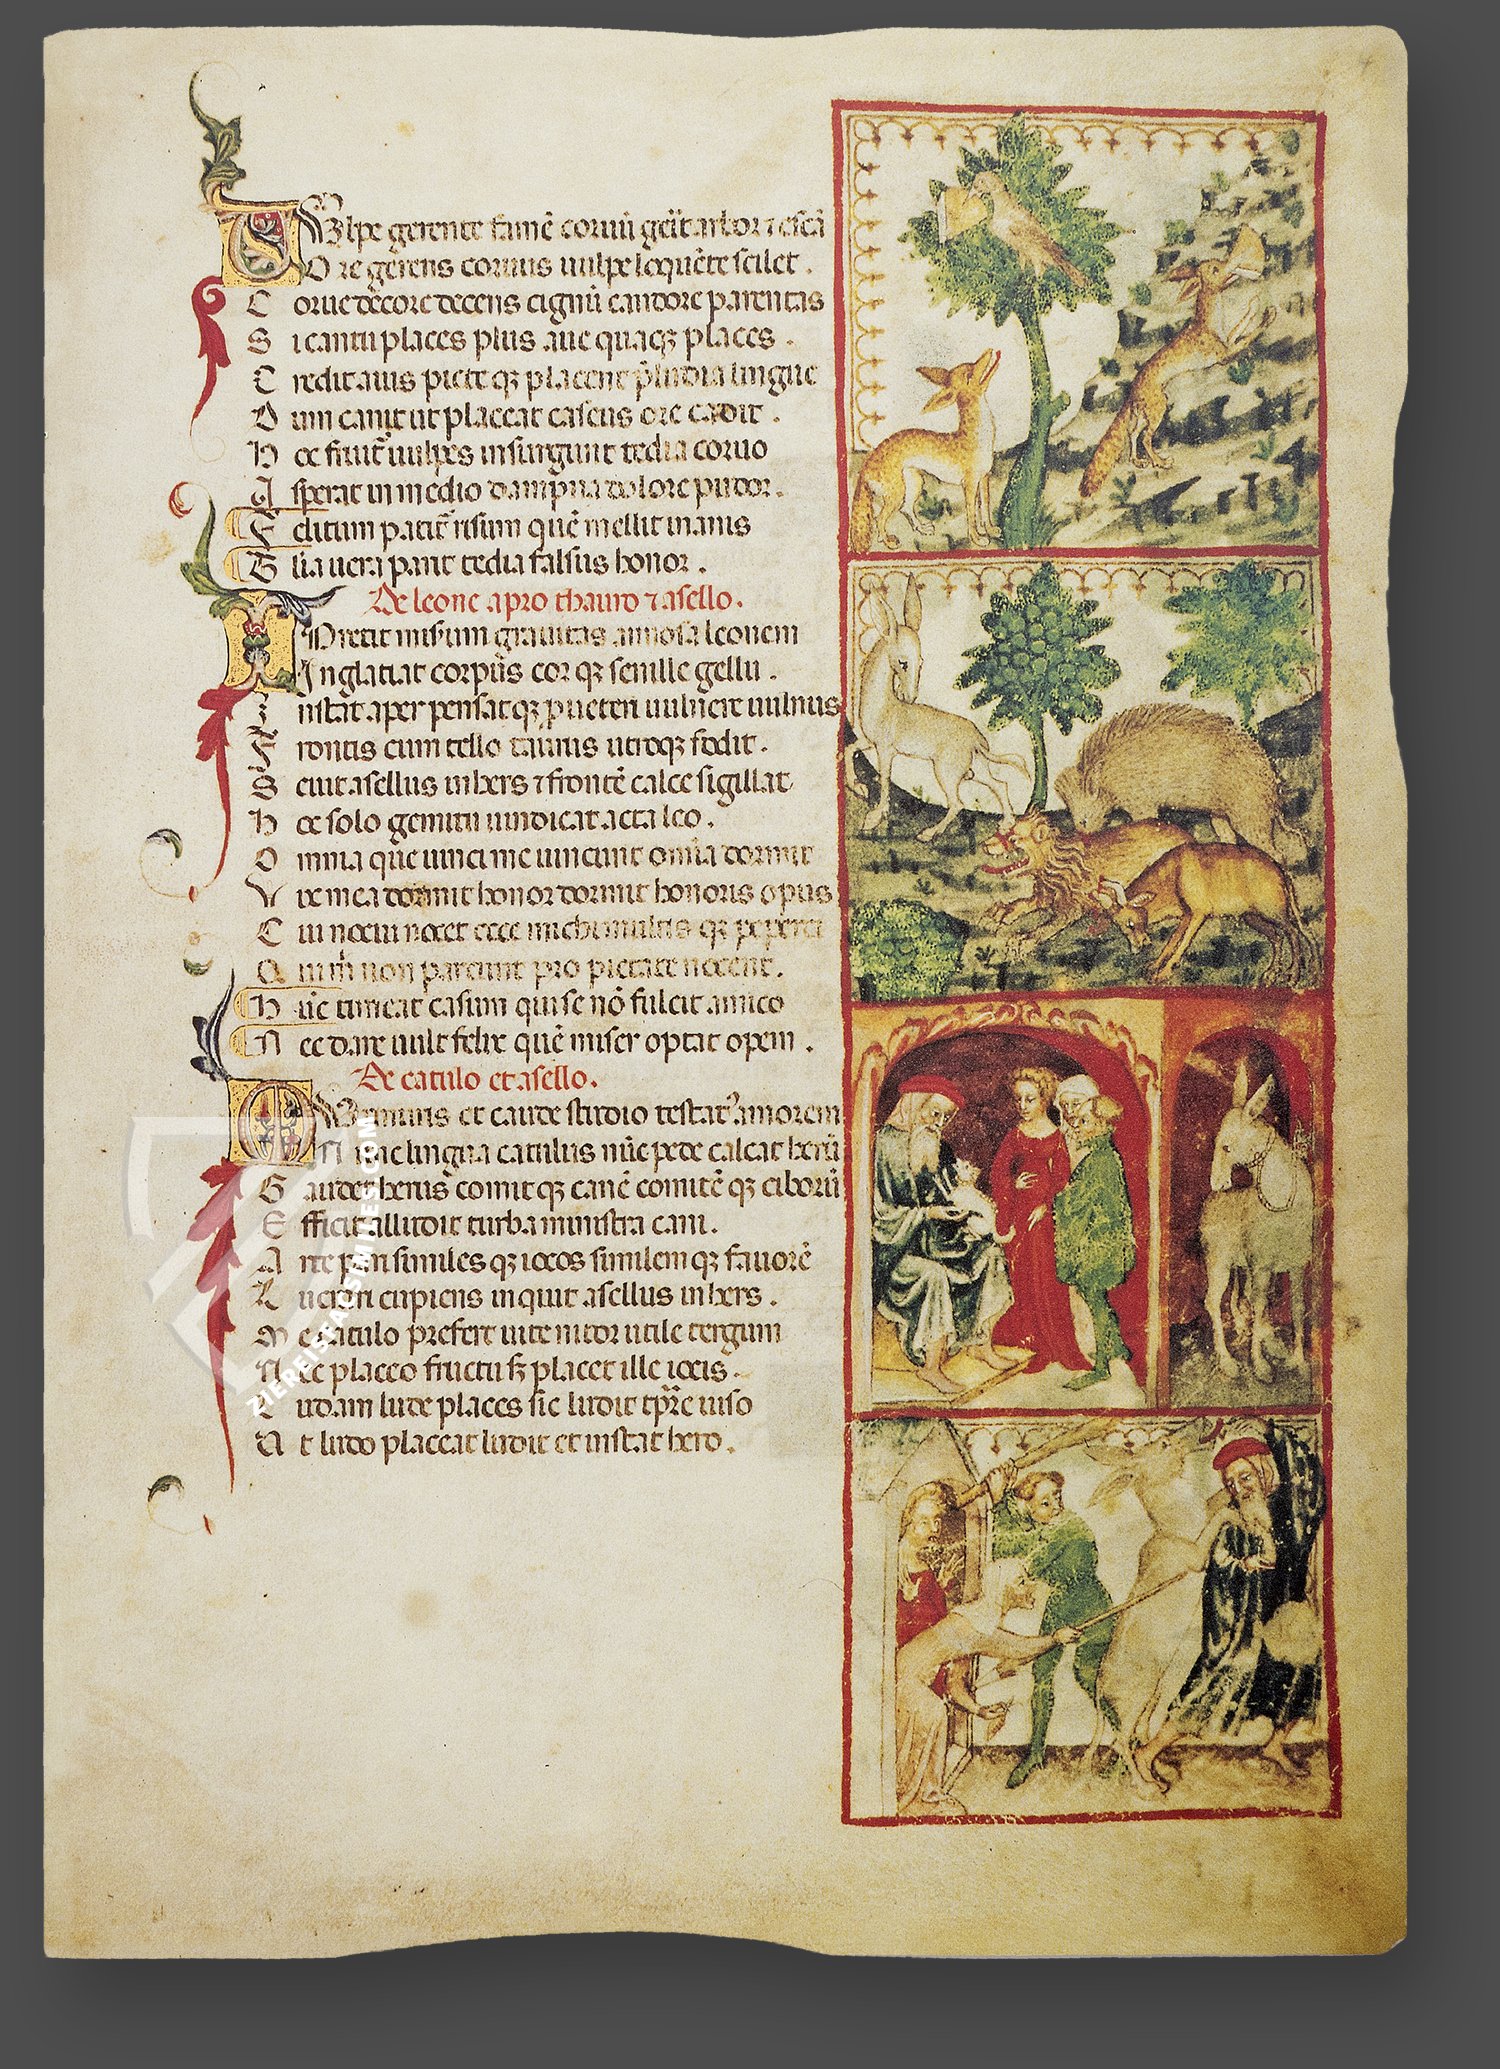 Vulpe gerente famē coruū geīt arbor ⁊ escā
Ore gerens coruus uulpe loquēte silet .
Corue decore decens cignū candore parentas
Si cantu places plus aue quaqꝫ places .
Credit auis picte qꝫ placent pludia lingue
Dum canit ut placeat caseus ore cadit .
Hoc fruit uulpes insurgunt tedia coruo
Asperat in medio dampna dolore pudor .
Fellitum patit risum quē mellit inanis
Glia uera parit tedia falsus honor .
De leone apro thauro ⁊ asello.
Inglatiat corpus cor qꝫ senille gellu .
Instat aper pensatqꝫ ueteri uulnere uulnus
Frontis cum tello taurus utroqꝫ fodit .
Scuit asellus inhers ⁊ frontē calce sigillat
Hoc solo gemitu uindicat acta leo .
Omnia que uinci me uincunt omīa dormit
Vix mea dormit honor dormit honoris opus
Cui nocui nocet ecce michi multis qꝫ peperci
Qui m̄ non parcunt pro pietate nocent .
Hūc timeat casum qui se nō fulcit amico
Nec dare uult felix quē miser optat opem .
De catulo et asello.
Murmuris et caude studio testat᾽ amorem
Nunc lingua catulus nūc pede calcat herū
Gaudet herus comitqꝫ canē comitē qꝫ ciborū
Efficit alludit turba ministra cani .
Arte pari similes qꝫ iocos similem qꝫ fauorē
Lucrari cupiens inquit asellus inhers .
Me catulo prefert uite nitor utile tergum
Nec placeo fructu sꝫ placet ille iocis .
Ludam lude places sic ludit tp̄re uiso
At ludo placeat ludit et instat hero .
ZIEREIS FACSIMILES.COM